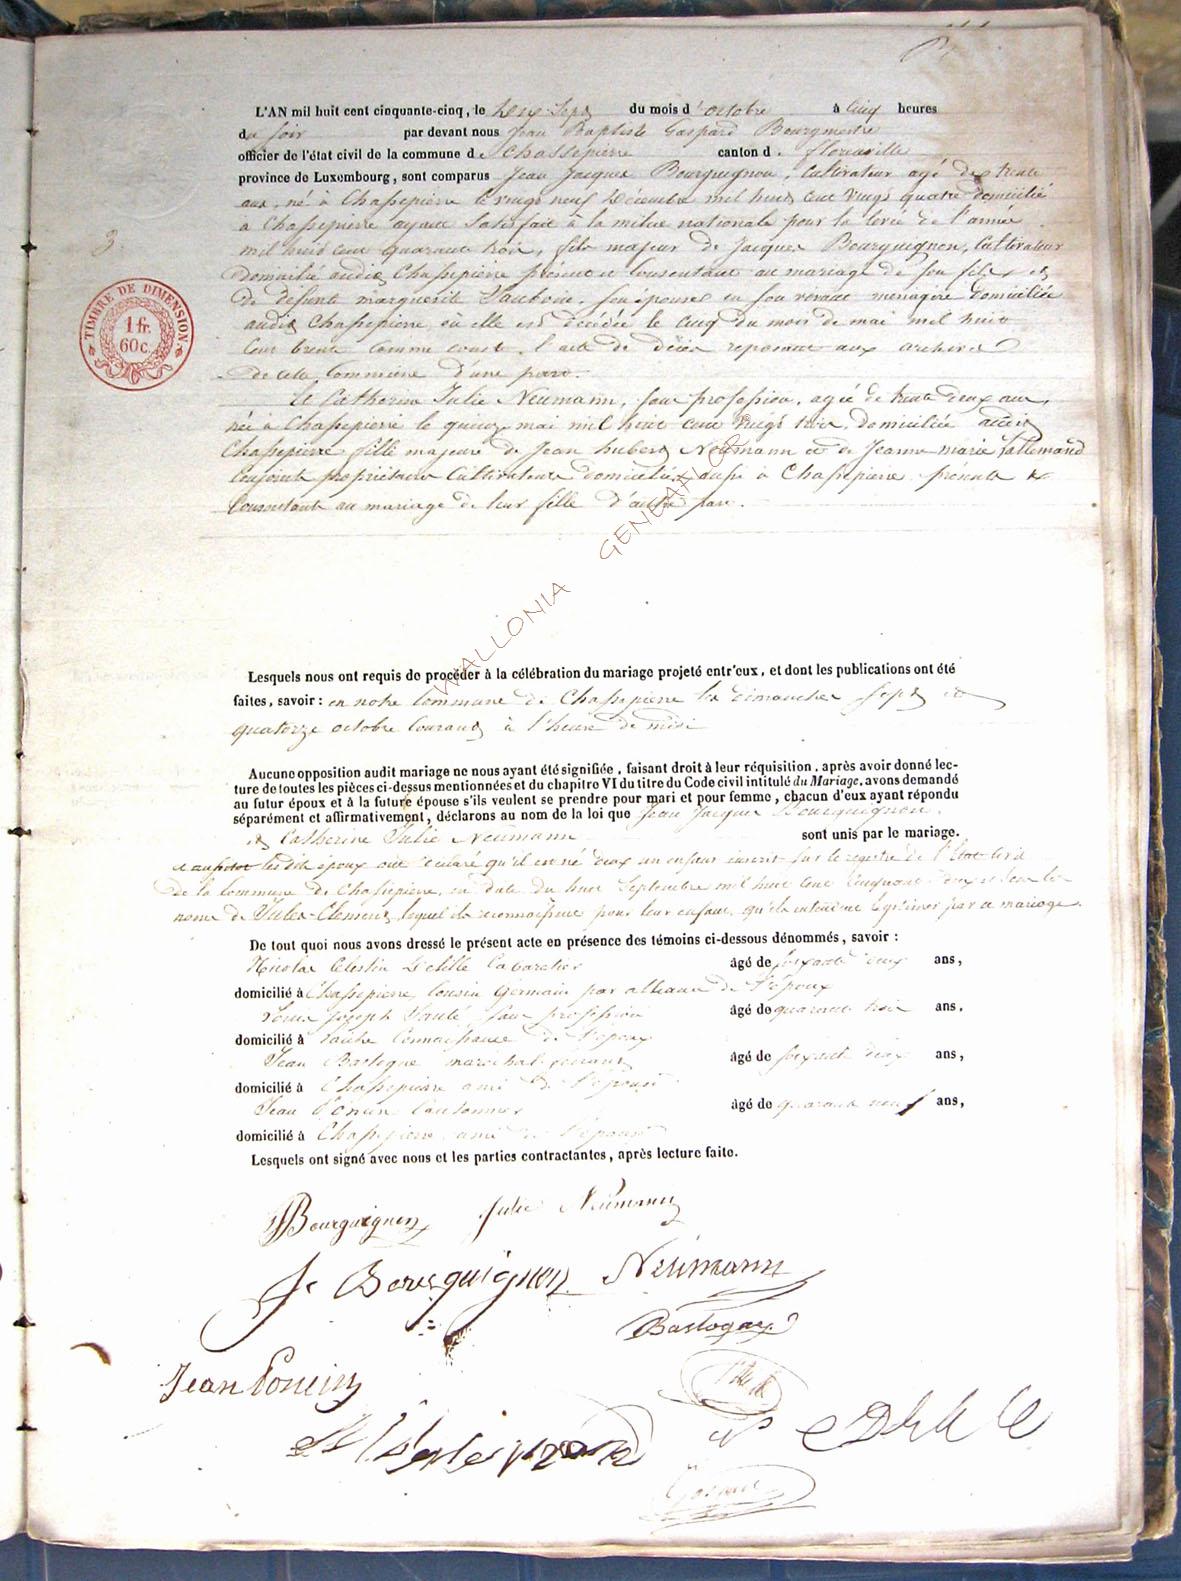 L'AN mil huit cent cinquante-cinq, le dix Sept du mois d'octobre à Cinq heures
du soir par devant nous Jean Baptiste Gaspard Bourgmestre
officier de l'état civil de la commune de Chassepierre canton d. florenville
province de Luxembourg, sont comparus Jean Jacques Bourguignon, Cultivateur agé de trente
ans, né à Chassepierre le vingt neuf Décembre mil huit cent vingt quatre domicilié
à Chassepierre ayant satisfait à la milice nationale pour la levée de l'année
mil huit cent quarante trois, fils majeur de Jacques Bourguignon, Cultivateur
domicilié audit Chassepierre présent et consentant au mariage de son fils et
de defunte marguerite son épouse en son vivant menagère domiciliée
audit Chassepierre où elle est decedée le cinq du mois de mai mil huit
cent trente comme const. l'acte de décès reposant aux archives
de cette Commune d'une part.
Et Catherine Julie Neumann, sans profession, agée de trente deux ans,
née à Chassepierre le quinze mai mil huit cent vingt trois, domiciliée audit
Chassepierre fille majeure de Jean hubert Neumann et de Jeanne marie Lallemand
Conjoints propriétaires Cultivateurs domiciliés aussi à Chassepierre présents et
Consentants au mariage de leur fille d'autre part.
3.
TIMBRE DE DIMENSION
1 fr.
60 c.
WALLONIA GENEAFLOR
Lesquels nous ont requis de procéder à la célébration du mariage projeté entr'eux, et dont les publications ont été
faites, savoir: en notre Commune de Chassepierre les dimanches sept et
quatorze octobre courant à l'heure de midi
Aucune opposition audit mariage ne nous ayant été signifiée, faisant droit à leur réquisition, après avoir donné lec-
ture de toutes les pièces ci-dessus mentionnées et du chapitre VI du titre du Code civil intitulé du Mariage, avons demandé
au futur époux et à la future épouse s'ils veulent se prendre pour mari et pour femme, chacun d'eux ayant répondu
séparément et affirmativement, déclarons au nom de la loi que Jean Jacques Bourguignon
et Catherine Julie Neumann sont unis par le mariage.
et aussitot les dits époux ont déclaré qu'il est né d'eux un enfant inscrit sur le registre de l'Etat Civil
de la Commune de Chassepierre, en date du huit Septembre mil huit cent cinquante deux
nom de Jules Clement, lequel ils reconnaissent pour leur enfant, qu'ils entendent légitimer par ce mariage.
De tout quoi nous avons dressé le présent acte en présence des témoins ci-dessous dénommés, savoir:
Nicolas Celestin Cabaretier âgé de soixante deux ans,
domicilié à Chassepierre, Cousin Germain par alliance de l'époux
Louis Joseph sans profession âgé de quarante trois ans,
domicilié à Connaissance de l'époux
Jean Bastogne marechal ferrant âgé de soixante deux ans,
domicilié à Chassepierre ami de l'épouse
Jean Poncin Cantonnier âgé de quarante neuf ans,
domicilié à Chassepierre ami de l'épouse
Lesquels ont signé avec nous et les parties contractantes, après lecture faite.
Bourguignon Julie Neumann
J Bourguignon Neumann
Bastogne
Jean Poncin